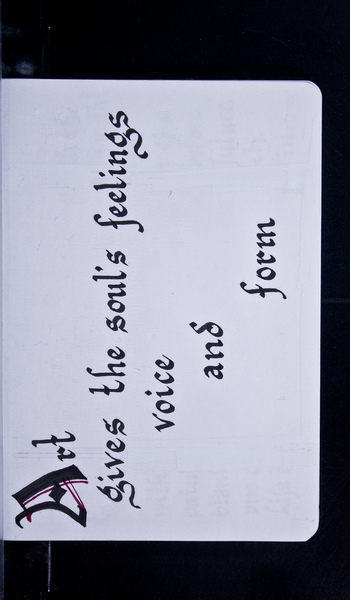 Art
gives the soul's feelings
voice
and
form